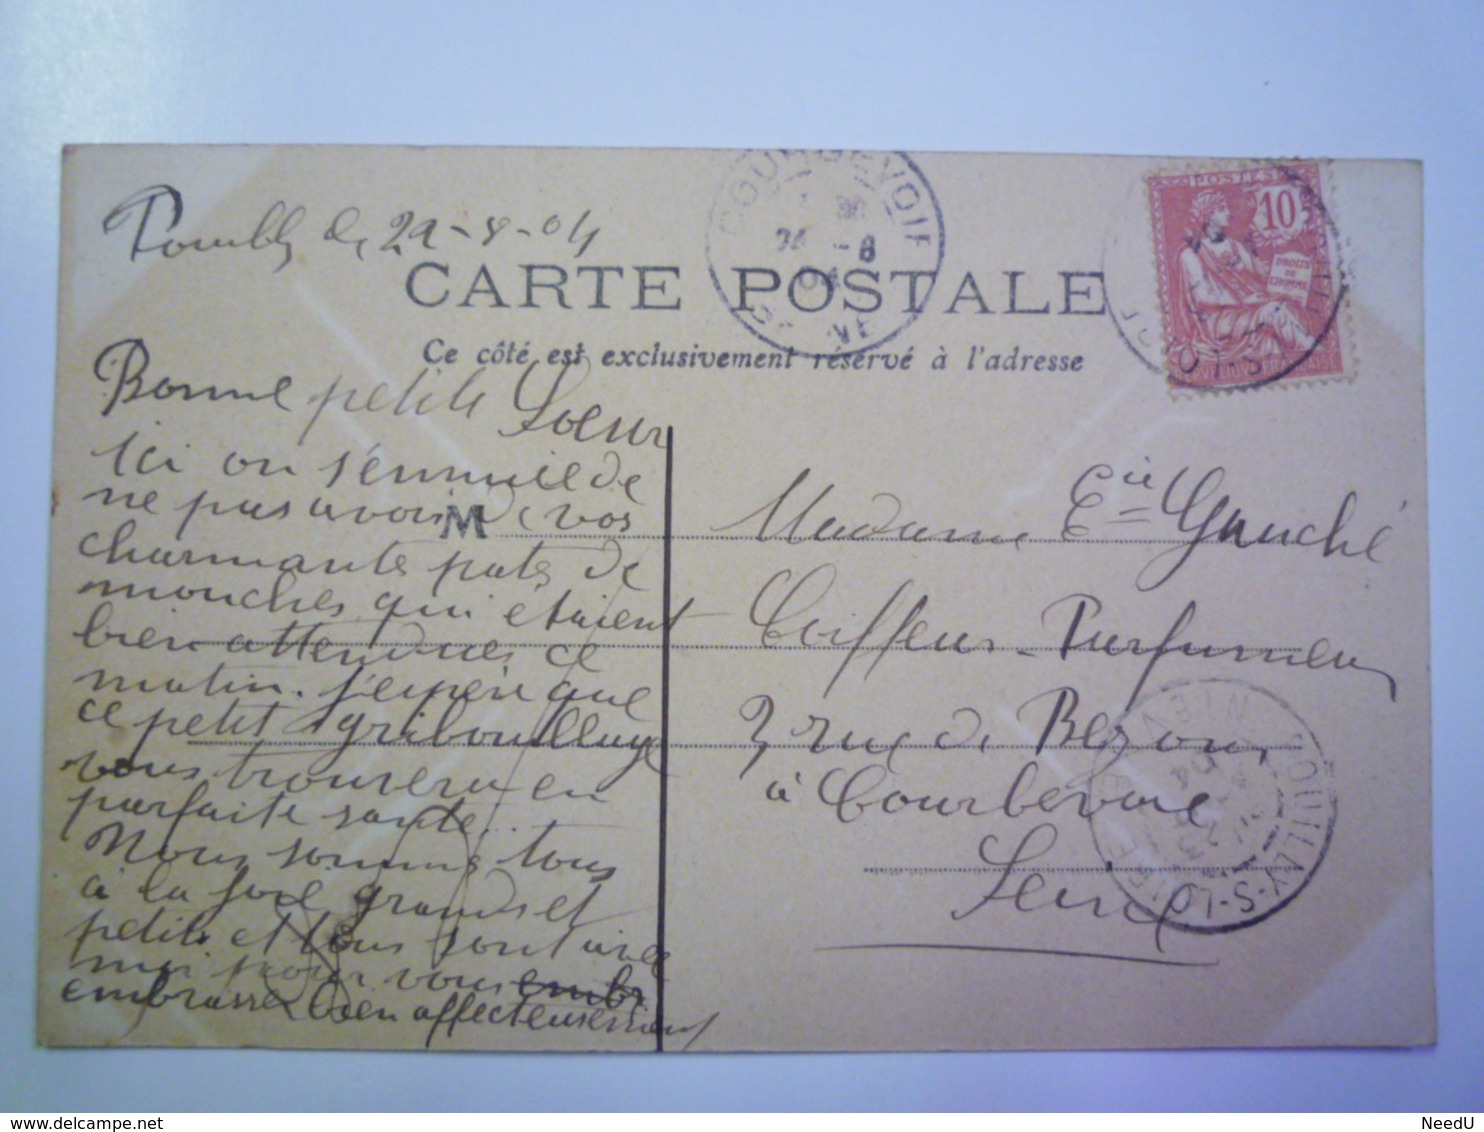 Pouilly le 22-8-04
CARTE POSTALE
Ce côté est exclusivement réservé à l'adresse
COURBEVOIE
24 -8
04
SEINE
POSTES
10
DROITS DE L'HOMME
Bonne petite Soeur
Ici on s'ennuie de
ne pas avoir de vos
charmante pates de
mouches qui étaient
bien attendues ce
matin. J'espère que
ce petit gribouillage
vous trouvera en
parfaite santé.
Nous sommes tous
à la joie grands et
petits et tous sont avec
moi pour vous embr
embrasser bien affectueusement
M
Madame Eie Gauché
Coiffeur-Parfumeur
3 rue de Bezons
à Courbevoie
Seine
POUILLY-S-LOIRE
NIEVRE
NeedU